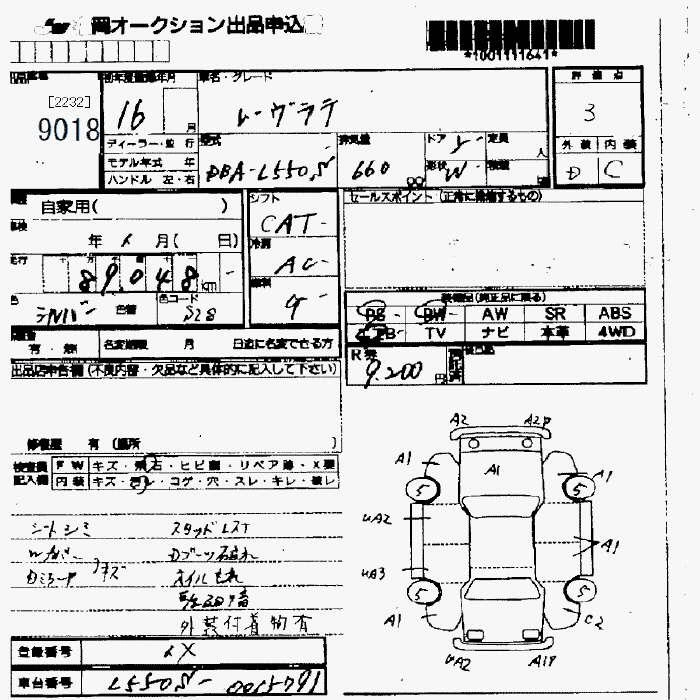 岡オークション出品申込
*1001111641*
初年度登録年月 車名・グレード 評価点
[2232]
9018
16 月 レ-ヴラテ 3
ディーラー・並行 型式 排気量 ドア 定員 人 外装 内装
モデル年式 年
ハンドル 左・右 DBA-L550S 660 形状 W D C
自家用( ) シフト セールスポイント (正常に稼働するもの)
CAT-
年 X 月( 日) 冷房
走行 89048 km AC-
色 シルバー 色替 色コード S28 4-
装備品(純正品に限る)
PS PW AW SR ABS
AB TV ナビ 本革 4WD
有・無 名変期限 月 日迄に名変できる方
R券 9,200 円 後日品
出品店申告欄(不良内容・欠品など具体的に記入して下さい)
修復歴 有 (箇所 )
検査員 FW キズ・飛石・ヒビ割・リペア跡・X要
記入欄 内装 キズ・汚レ・コゲ・穴・スレ・キレ・破レ
シートシミ スタッドレスT
Dブーツ破れ
Dミラー キズ オイルもれ
外装付着物有
A2 A2P
A1 A1 A1
5 5
UA2 A1
UA3
5 5
A1 C2
UA2 A1P
登録番号 X
車台番号 L550S- 0015791